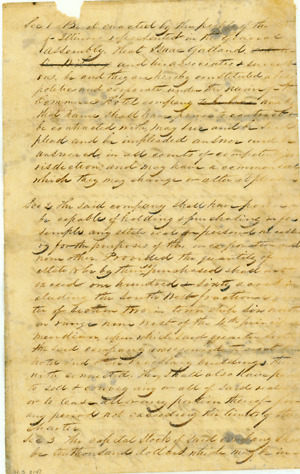 Sec 1 Be it enacted by the people of the
Illinois represented in the General
Assembly, that Isaac Galland,
and his associates & success
ors, be and they are hereby constituted a body
politic and corporate under the name of
Commerce Hotel company and by
that name shall have power to contract and
be contracted with, may sue and be sued
plead and be impleaded answer and be
answered in all courts of competent ju
risdiction; and may have a common seal
which they may change or alter at pleasure
Sec 2 The said company shall have power
be capable of holding & purchasing in fee
simple any estate real or personal
for the purposes of this incorporation and
none other. Provided the quantity of
estate to be by them purchased shall not
exceed one hundred & sixty acres in
cluding the South West fractional
of Section two, in township six north
on range nine west of the 4th prin
meridian, upon which said quarter
the said company
and
with connected. They shall also have power
to sell & convey any or all of said real
or to lease any portion thereof
any period not exceeding the limits of the
charter.
Sec 3 The capital stock of said company shall
be ten thousand dollars, which may be in